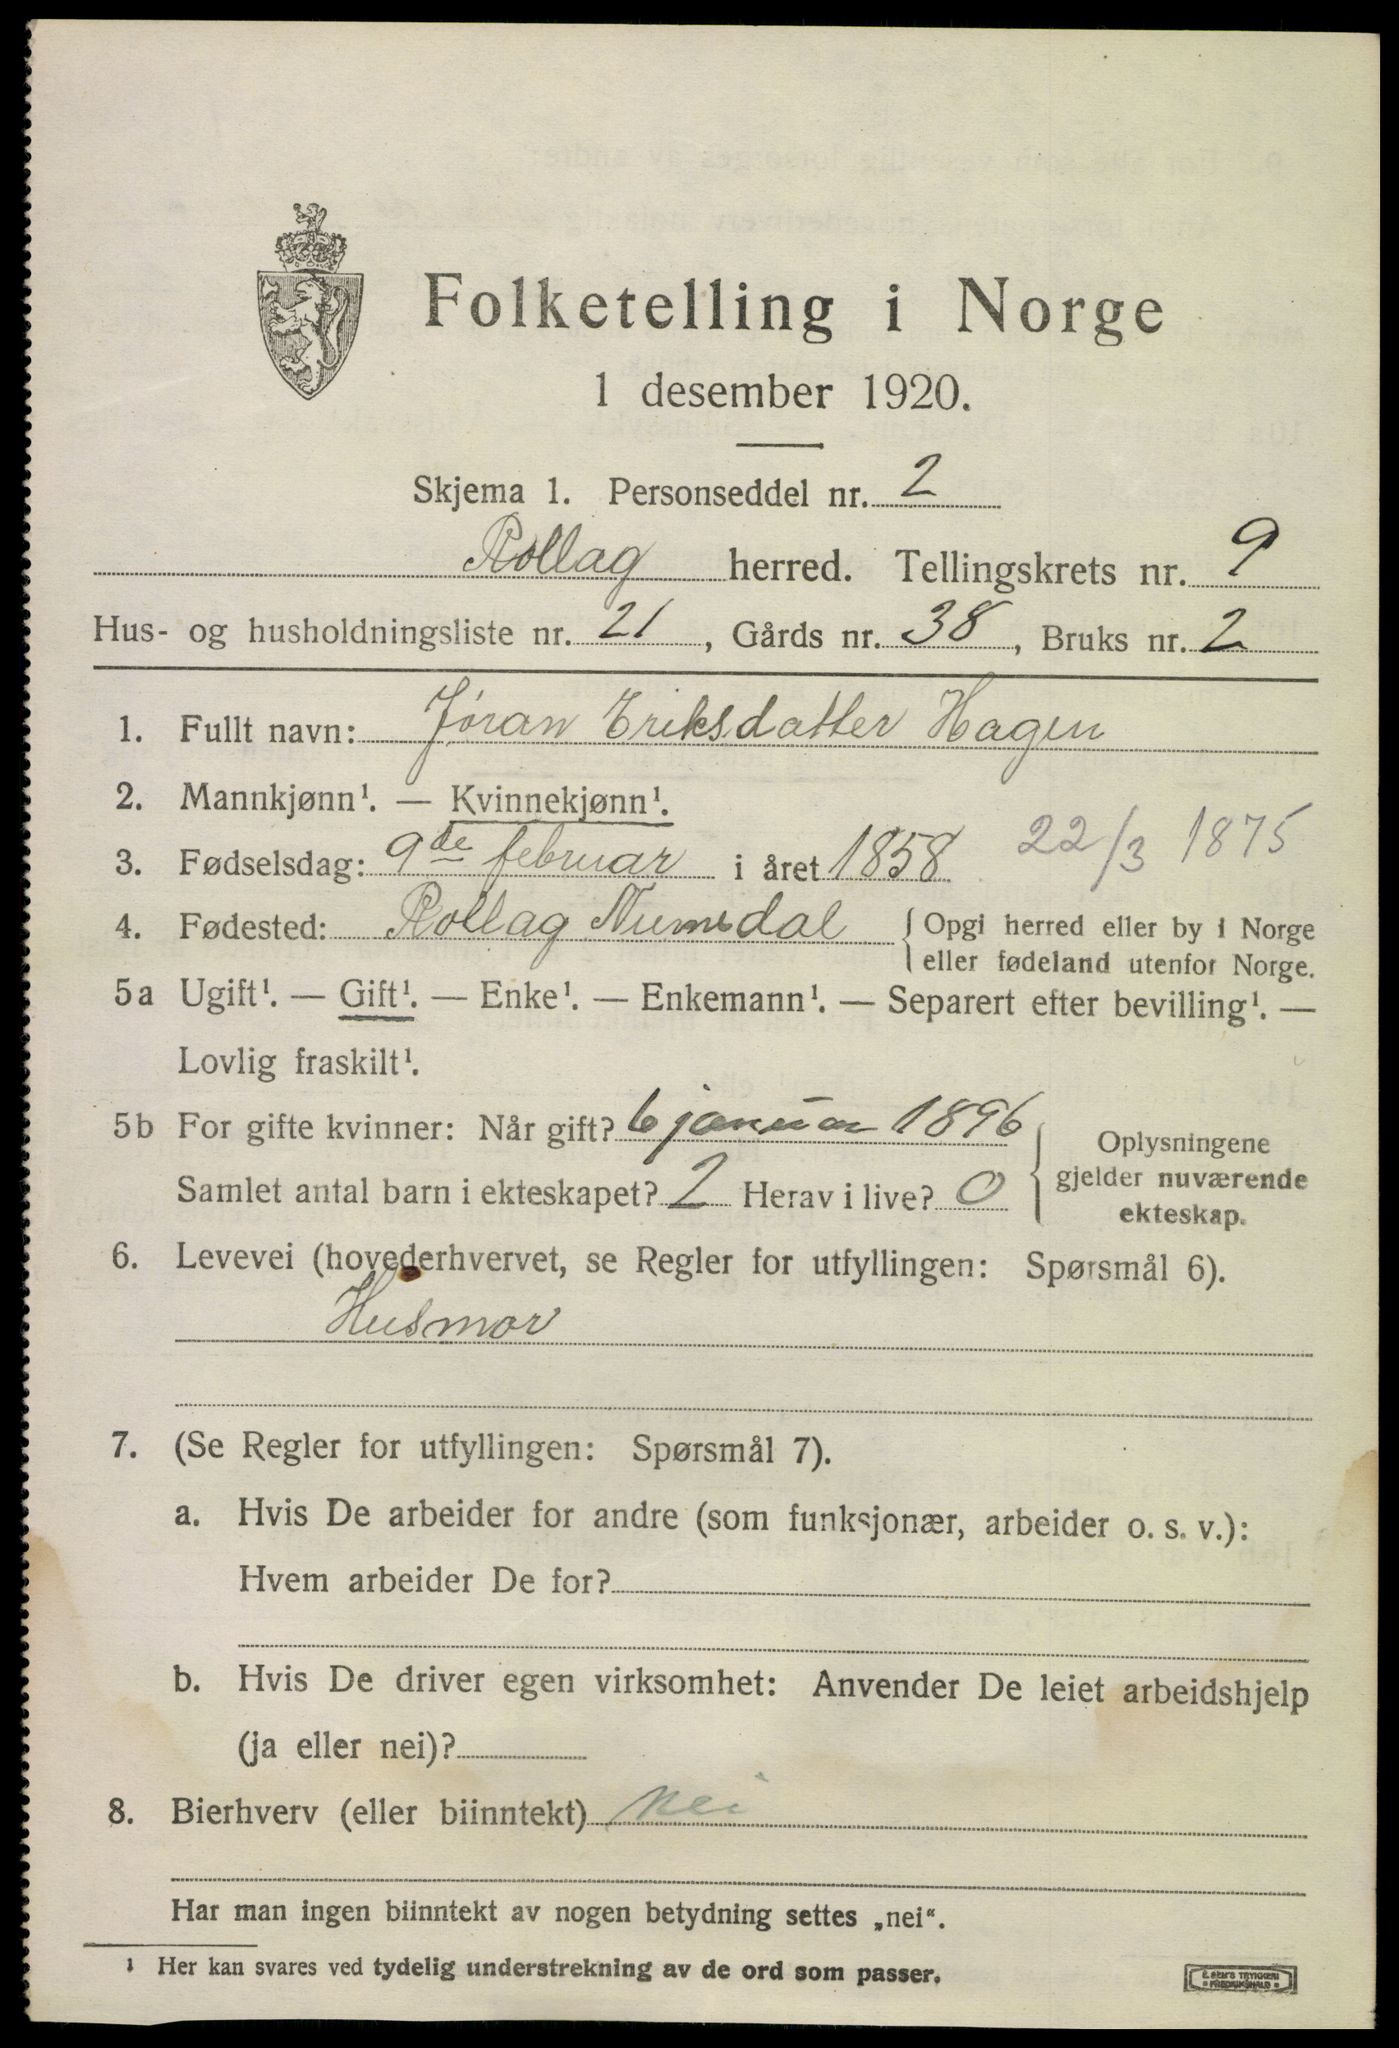 Folketelling i Norge
1 desember 1920.
Skjema 1. Personseddel nr. 2
Rollag herred. Tellingskrets nr. 9
Hus- og husholdningsliste nr. 21, Gårds nr. 38, Bruks nr. 2
1. Fullt navn: Jøran Eriksdatter Hagen
2. Mannkjønn¹. — Kvinnekjønn¹.
3. Fødselsdag: 9de februar i året 1858 22/3 1875
4. Fødested: Rollag Numedal { Opgi herred eller by i Norge
eller fødeland utenfor Norge.
5a Ugift¹. — Gift¹. — Enke¹. — Enkemann¹. — Separert efter bevilling¹. —
Lovlig fraskilt¹.
5b For gifte kvinner: Når gift? 6 januar 1896
Samlet antal barn i ekteskapet? 2 Herav i live? 0
{ Oplysningene
gjelder nuværende
ekteskap.
6. Levevei (hovederhvervet, se Regler for utfyllingen: Spørsmål 6).
Husmor
7. (Se Regler for utfyllingen: Spørsmål 7).
a. Hvis De arbeider for andre (som funksjonær, arbeider o. s. v.):
Hvem arbeider De for?
b. Hvis De driver egen virksomhet: Anvender De leiet arbeidshjelp
(ja eller nei)?
8. Bierhverv (eller biinntekt) Nei
Har man ingen biinntekt av nogen betydning settes „nei“.
¹ Her kan svares ved tydelig understrekning av de ord som passer.
E. SEM'S TRYKKERI
FREDRIKSHALD